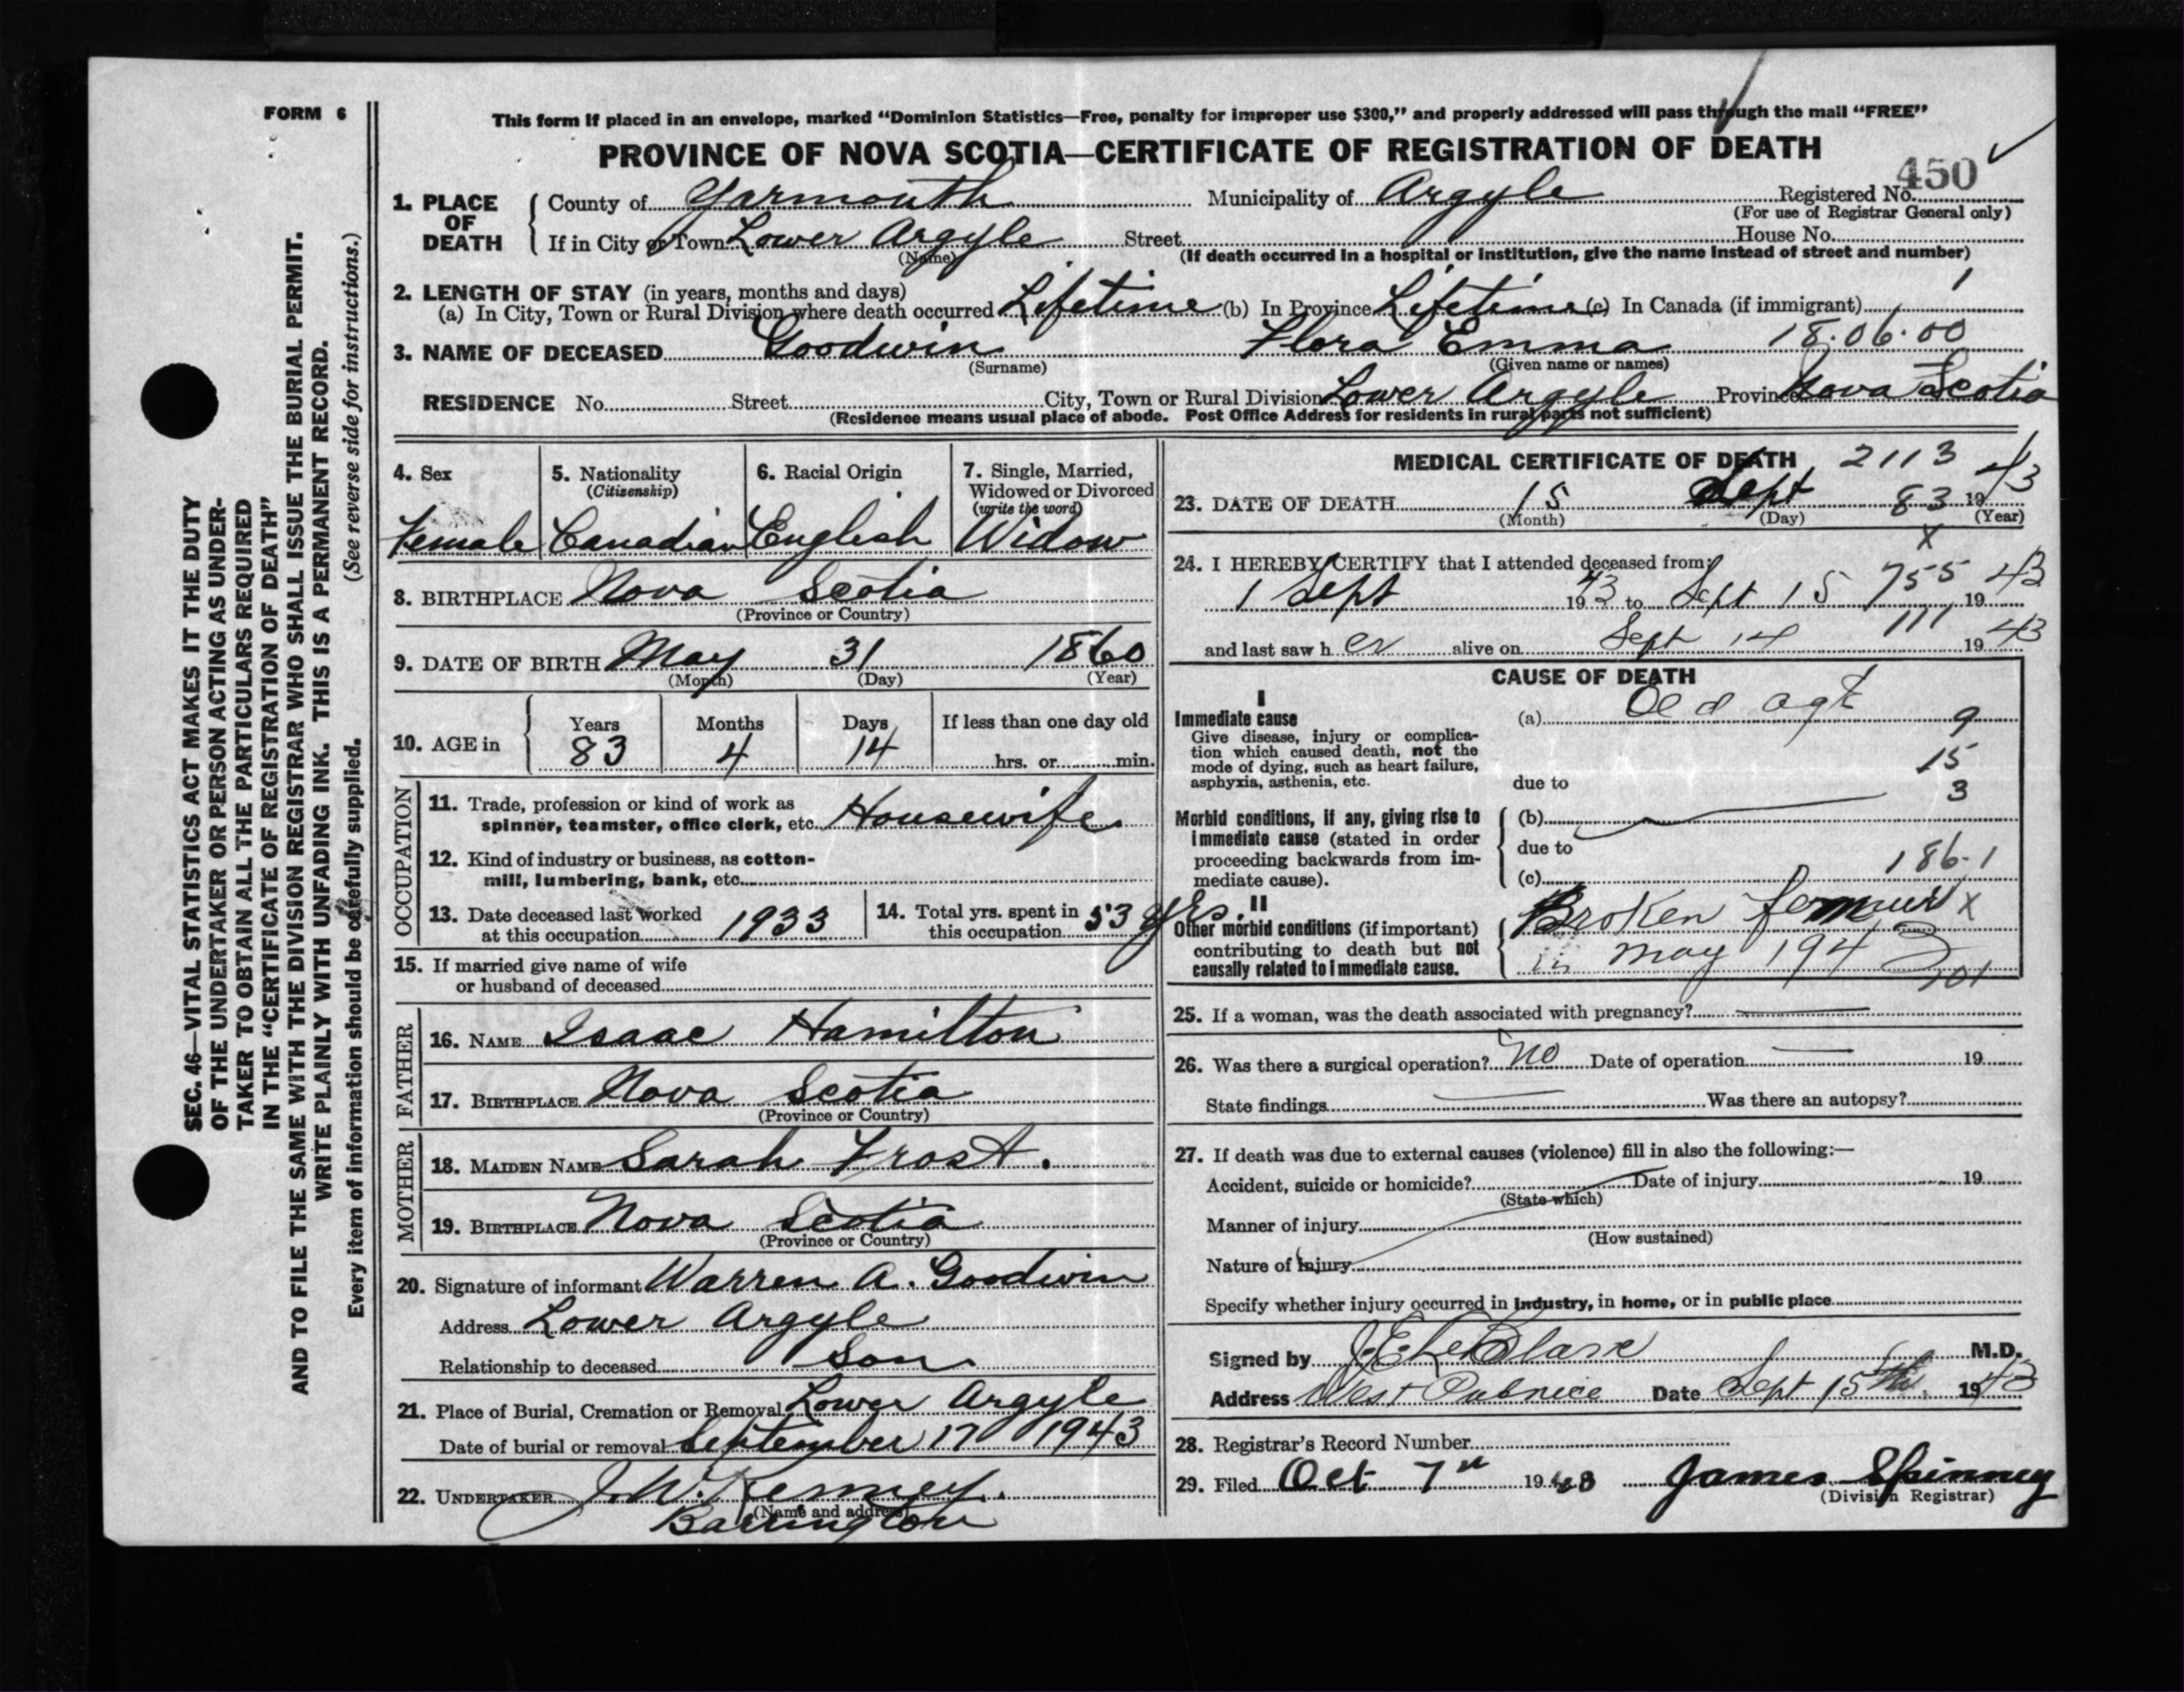 FORM 6
This form if placed in an envelope, marked "Dominion Statistics—Free, penalty for improper use $300," and properly addressed will pass through the mail "FREE"
PROVINCE OF NOVA SCOTIA—CERTIFICATE OF REGISTRATION OF DEATH
450
1. PLACE OF DEATH { County of Yarmouth Municipality of Argyle Registered No.
(For use of Registrar General only)
If in City or Town Lower Argyle Street House No.
(Name) (If death occurred in a hospital or institution, give the name instead of street and number)
2. LENGTH OF STAY (in years, months and days)
(a) In City, Town or Rural Division where death occurred Lifetime (b) In Province Lifetime (c) In Canada (if immigrant) 1
3. NAME OF DECEASED Goodwin Flora Emma 18.06.00
(Surname) (Given name or names)
RESIDENCE No. Street City, Town or Rural Division Lower Argyle Province Nova Scotia
(Residence means usual place of abode. Post Office Address for residents in rural parts not sufficient)
4. Sex
Female
5. Nationality
(Citizenship)
Canadian
6. Racial Origin
English
7. Single, Married,
Widowed or Divorced
(write the word)
Widow
8. BIRTHPLACE Nova Scotia
(Province or Country)
9. DATE OF BIRTH May 31 1860
(Month) (Day) (Year)
10. AGE in Years Months Days If less than one day old
83 4 14 hrs. or min.
OCCUPATION
11. Trade, profession or kind of work as
spinner, teamster, office clerk, etc. Housewife
12. Kind of industry or business, as cotton-
mill, lumbering, bank, etc.
13. Date deceased last worked
at this occupation 1933
14. Total yrs. spent in
this occupation 53 yrs.
15. If married give name of wife
or husband of deceased
FATHER
16. NAME Isaac Hamilton
17. BIRTHPLACE Nova Scotia
(Province or Country)
MOTHER
18. MAIDEN NAME Sarah Frost.
19. BIRTHPLACE Nova Scotia
(Province or Country)
20. Signature of informant Warren A. Goodwin
Address Lower Argyle
Relationship to deceased Son
21. Place of Burial, Cremation or Removal Lower Argyle
Date of burial or removal September 17 1943
22. UNDERTAKER J. W. Kenney.
(Name and address)
Barrington
MEDICAL CERTIFICATE OF DEATH 2113
23. DATE OF DEATH 15 Sept 83 1943
(Month) (Day) (Year)
x
24. I HEREBY CERTIFY that I attended deceased from
1 Sept 1943 to Sept 15 755 1943
and last saw her alive on Sept 14 111 1943
CAUSE OF DEATH
I
Immediate cause
Give disease, injury or complica-
tion which caused death, not the
mode of dying, such as heart failure,
asphyxia, asthenia, etc.
(a) Old age 9
15
due to 3
Morbid conditions, if any, giving rise to
immediate cause (stated in order
proceeding backwards from im-
mediate cause).
(b)
due to
186.1
(c)
II
Other morbid conditions (if important)
contributing to death but not
causally related to immediate cause.
Broken femur x
in may 1943
201
25. If a woman, was the death associated with pregnancy?
26. Was there a surgical operation? no Date of operation 19
State findings Was there an autopsy?
27. If death was due to external causes (violence) fill in also the following:—
Accident, suicide or homicide? Date of injury 19
(State which)
Manner of injury
(How sustained)
Nature of injury
Specify whether injury occurred in industry, in home, or in public place
Signed by J. E. LeBlanc M.D.
Address West Pubnico Date Sept 15th 1943
28. Registrar's Record Number
29. Filed Oct 7th 1943 James Spinney
(Division Registrar)
SEC. 46—VITAL STATISTICS ACT MAKES IT THE DUTY
OF THE UNDERTAKER OR PERSON ACTING AS UNDER-
TAKER TO OBTAIN ALL THE PARTICULARS REQUIRED
IN THE "CERTIFICATE OF REGISTRATION OF DEATH"
AND TO FILE THE SAME WITH THE DIVISION REGISTRAR WHO SHALL ISSUE THE BURIAL PERMIT.
WRITE PLAINLY WITH UNFADING INK. THIS IS A PERMANENT RECORD.
Every item of information should be carefully supplied. (See reverse side for instructions.)